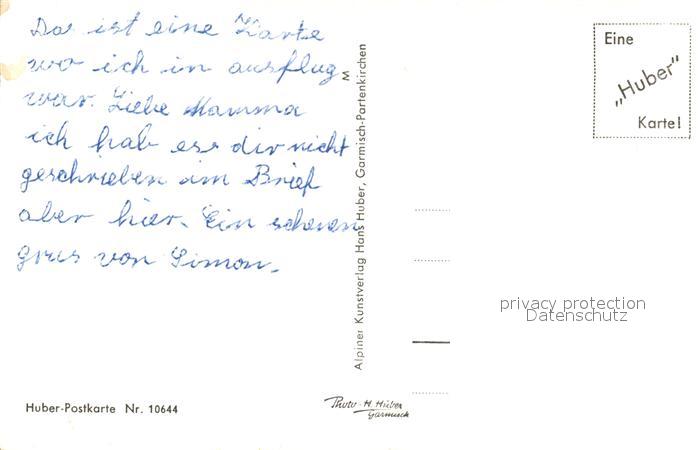 Das ist eine Karte
wo ich in ausflug
war. Liebe Mamma
ich hab ess dir nicht
geschrieben im Brief
aber hier. Ein schenen
grus von Simon.
Huber-Postkarte Nr. 10644
M
Alpiner Kunstverlag Hans Huber, Garmisch-Partenkirchen
Photo-H. Huber
Garmisch
Eine
„Huber"
Karte!
privacy protection
Datenschutz